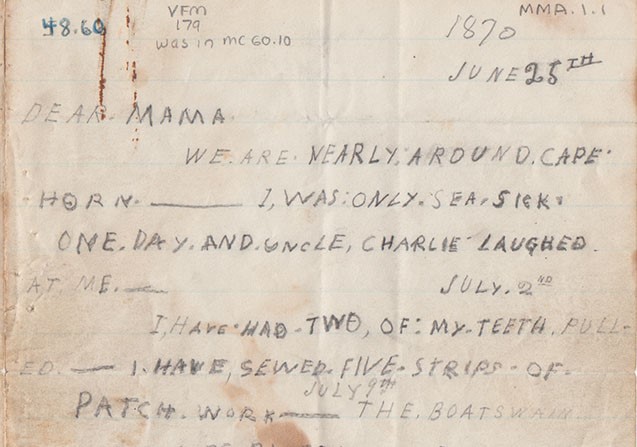 48.60
VFM
179
was in MC 60.10
MMA.1.1
1870
JUNE 25TH
DEAR. MAMA.
WE. ARE. NEARLY. AROUND. CAPE.
HORN. —— I, WAS. ONLY. SEA. SICK.
ONE. DAY. AND. UNCLE, CHARLIE LAUGHED.
AT. ME. — JULY. 2ND
I, HAVE. HAD. TWO, OF. MY. TEETH. PULL-
ED. — I. HAVE, SEWED. FIVE. STRIPS. OF.
JULY 9TH
PATCH. WORK —— THE. BOATSWAIN